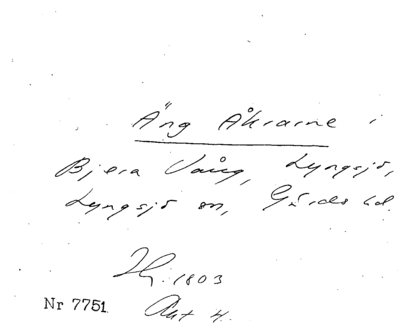 Äng Åkrarne i
Bjera Vång, Lyngsjö,
Lyngsjö sn, Gärds hd.
1803
Nr 7751 Akt 4.